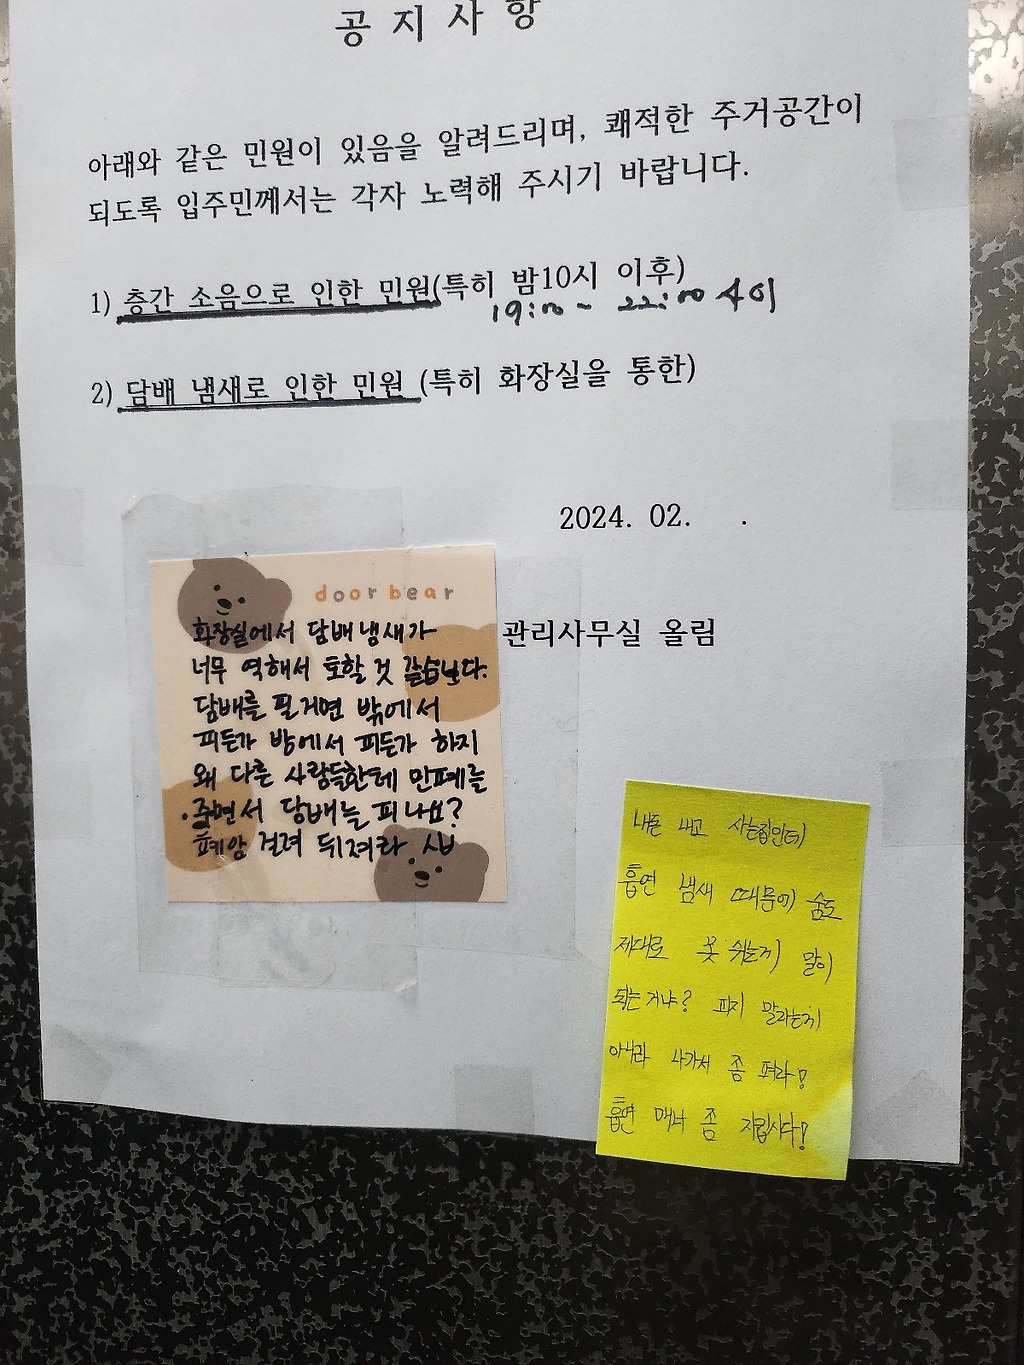 공 지 사 항
아래와 같은 민원이 있음을 알려드리며, 쾌적한 주거공간이
되도록 입주민께서는 각자 노력해 주시기 바랍니다.
1) 층간 소음으로 인한 민원(특히 밤10시 이후)
19:00 ~ 22:00 사이
2) 담배 냄새로 인한 민원 (특히 화장실을 통한)
2024. 02. .
관리사무실 올림
door bear
화장실에서 담배 냄새가
너무 역해서 토할 것 같습니다.
담배를 필거면 밖에서
피든가 방에서 피든가 하지
왜 다른 사람들한테 민폐를
주면서 담배를 피나요?
폐암 걸려 뒤져라 시발
내돈 내고 사는집인데
흡연 냄새 때문에 숨도
제대로 못 쉬는게 말이
되는거냐? 피지 말라는게
아니라 나가서 좀 펴라!
흡연 매너 좀 지킵시다!